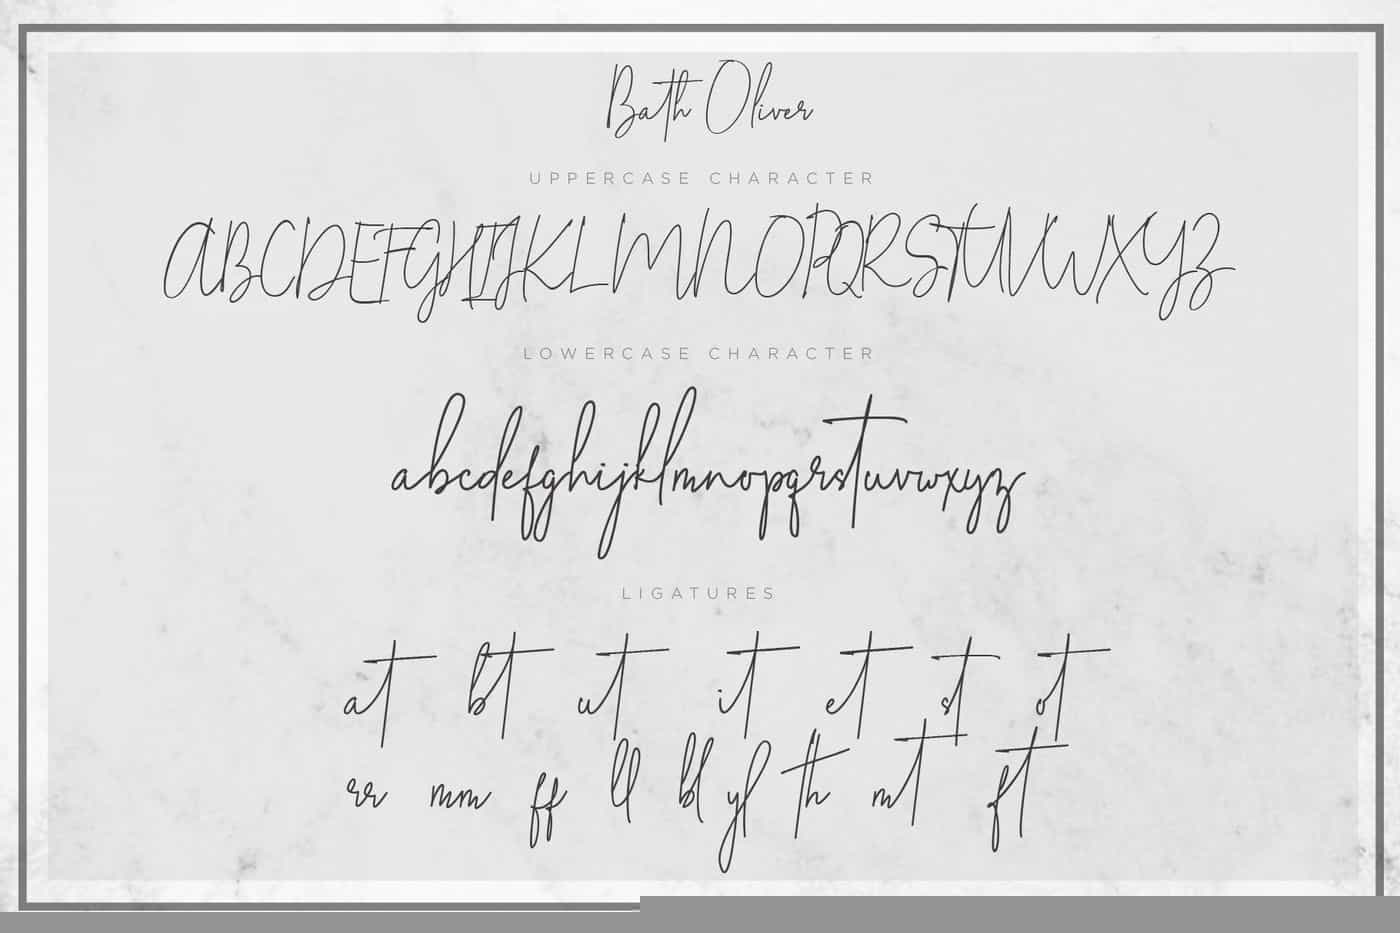 Bath Oliver
UPPERCASE CHARACTER
ABCDEFGHIJKLMNOPQRSTUVWXYZ
LOWERCASE CHARACTER
abcdefghijklmnopqrstuvwxyz
LIGATURES
at bt ut it et st ot
rr mm ff ll bl yl th mt ft